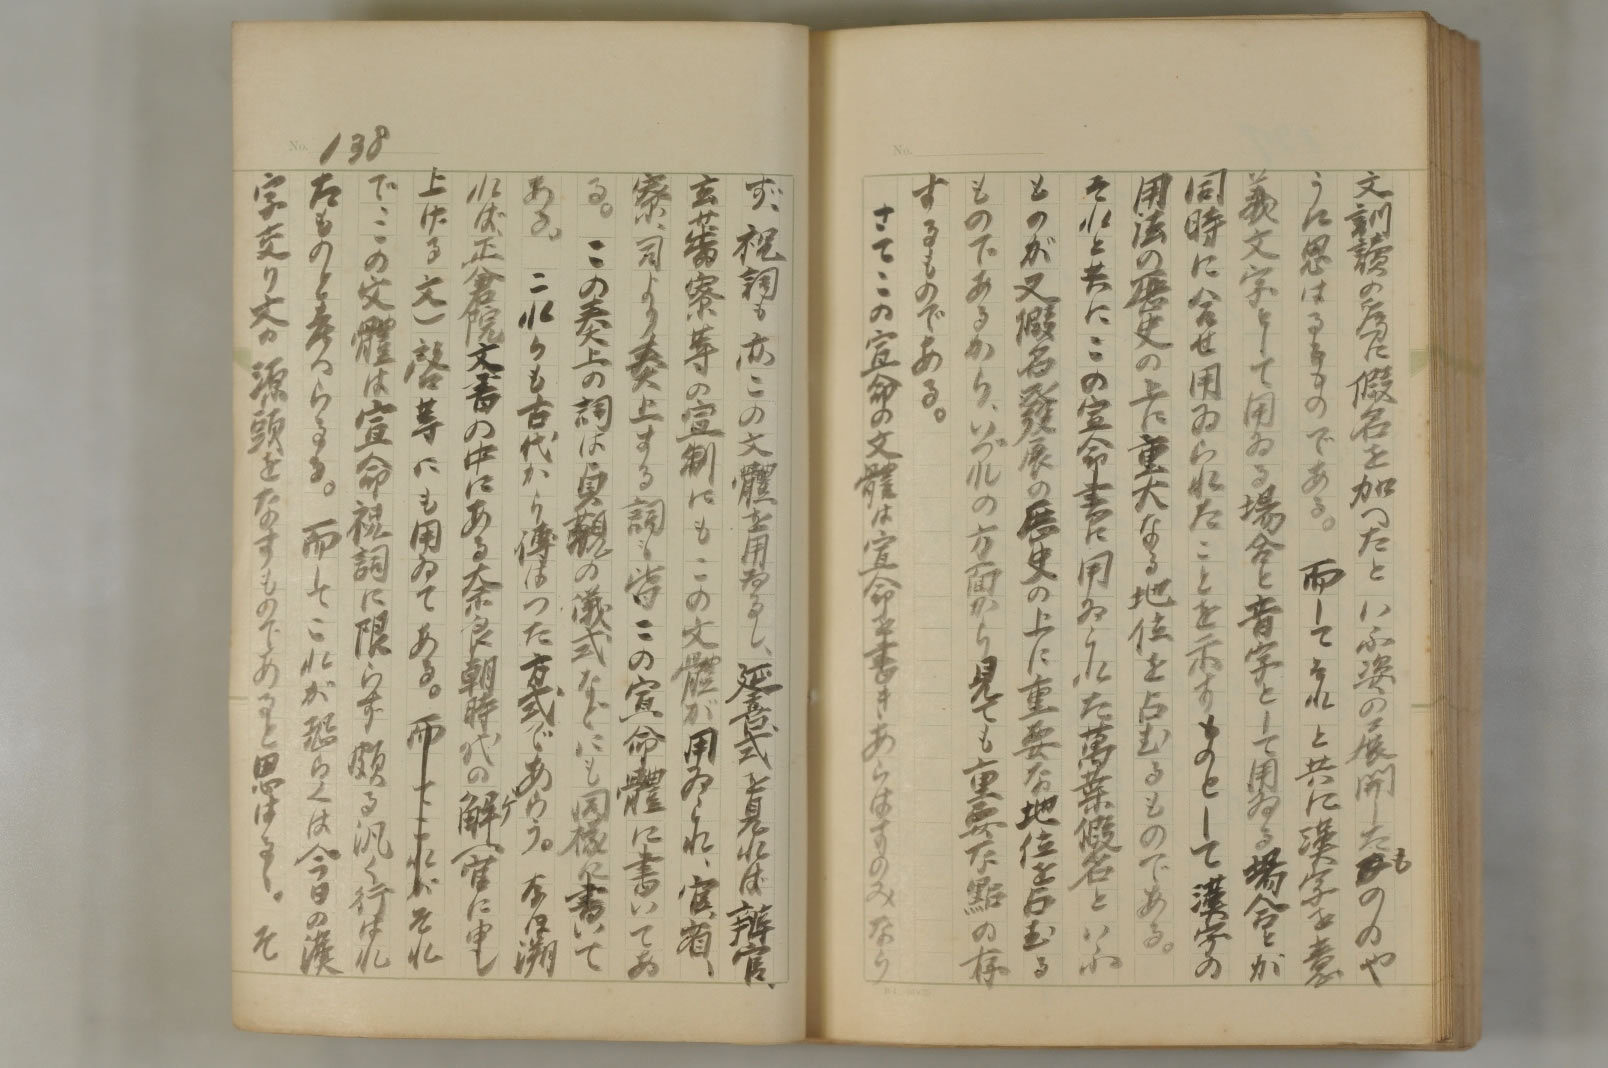 文訓讀の爲に假名を加へたといふ姿の展開したもののや
うに思はるゝものである。而してそれと共に漢字を意
義文字として用ゐる場合と音字として用ゐる場合とが
同時に合せ用ゐられたことを示すものとして漢字の
用法の歷史の上に重大なる地位を占むるものである。
それと共にこの宣命書に用ゐられた萬葉假名といふ
ものが又假名發展の歷史の上に重要な地位を占むる
ものであるから、いづれの方面から見ても重要な點の存
するものである。
さてこの宣命の文體は宣命を書きあらはすのみなら
No. 138
ず、祝詞も亦この文體を用ゐるし、延喜式を見れば辨官、
玄蕃寮等の宣制にもこの文體が用ゐられ、官、省、
寮、司より奏上する詞も皆この宣命體に書いてあ
る。この奏上の詞は貞觀の儀式などにも同樣に書いて
ある。これらも古代から傳はつた方式であらう。なほ溯
れば正倉院文書の中にある奈良朝時代の解ゲ(官に申し
上ぐる文)啓等にも用ゐてある。而してこれがそれ
でこの文體は宣命祝詞に限らず頗る汎く行はれ
たものと考へらるる。而してこれが恐らくは今日の漢
字交り文の源頭をなすものであると思はるゝ。そ
No.